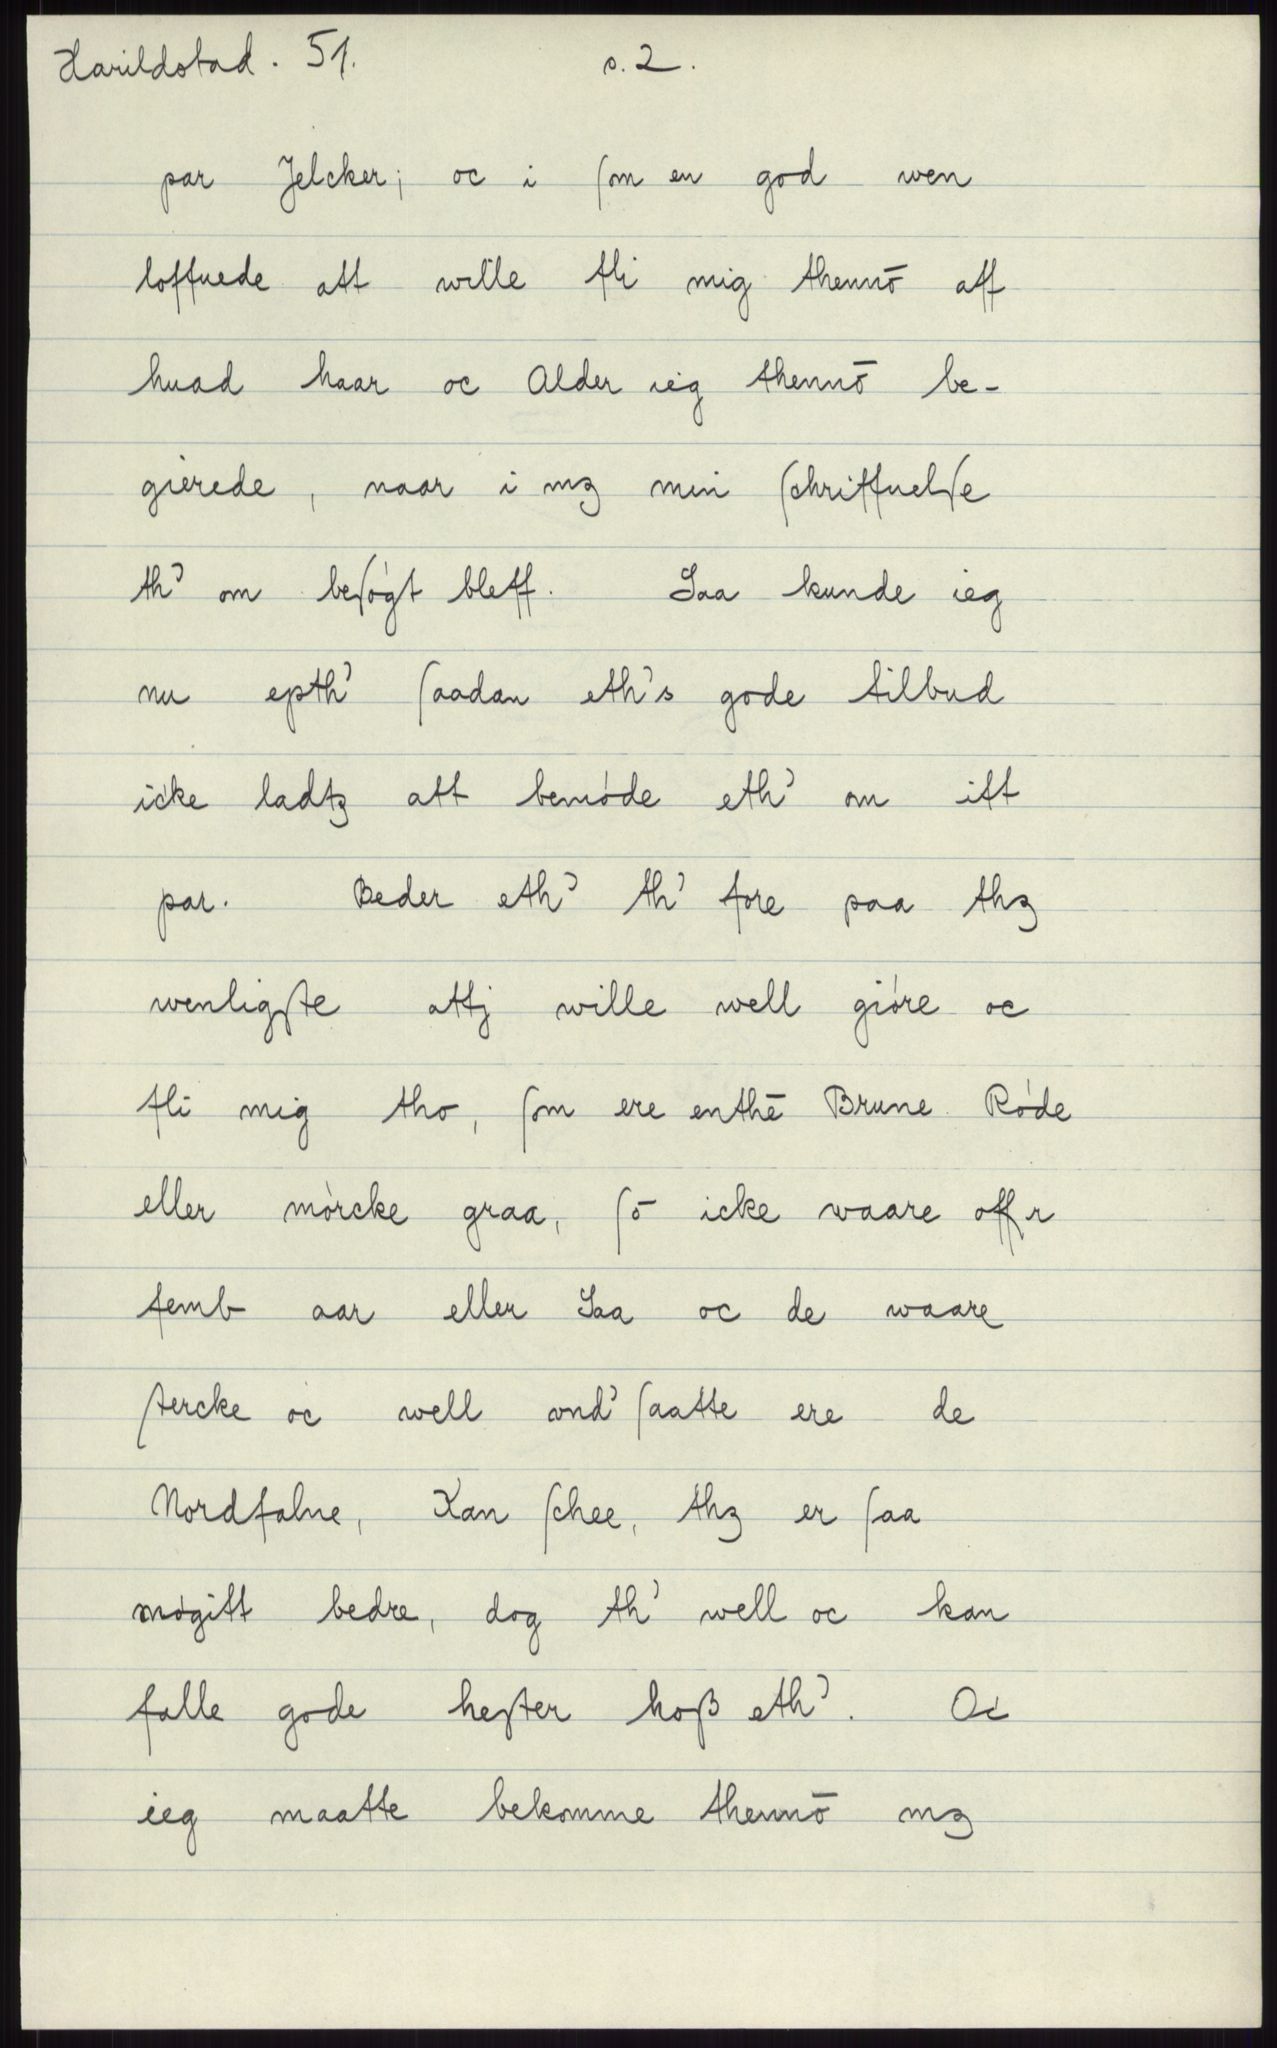 Harildstad. 51. s. 2.
par Jelcker; oc i ſom en god wen
loffuede att wille fli mig thennō aff
huad haar oc Alder ieg thennō be-
gierede, naar i mꝫ min ſchriffuelſe
th' om beſógt bleff. Saa kunde ieg
nu epth' ſaadan eth's gode tilbud
icke ladtꝫ att bemóde eth' om itt
par. Beder eth' th' fore paa thꝫ
wenligſte attj wille well gióre oc
fli mig tho, ſom ere enthē Brune Róde
eller mórcke graa, ſō icke waare offr
femb aar eller Saa oc de waare
ſtercke oc well vnd' ſaatte ere de
Nordfalne, Kan ſchee, thꝫ er ſaa
mógitt bedre, dog th' well oc kan
falle gode heſter hoß eth'. Oc
ieg maatte bekomme thennō mꝫ